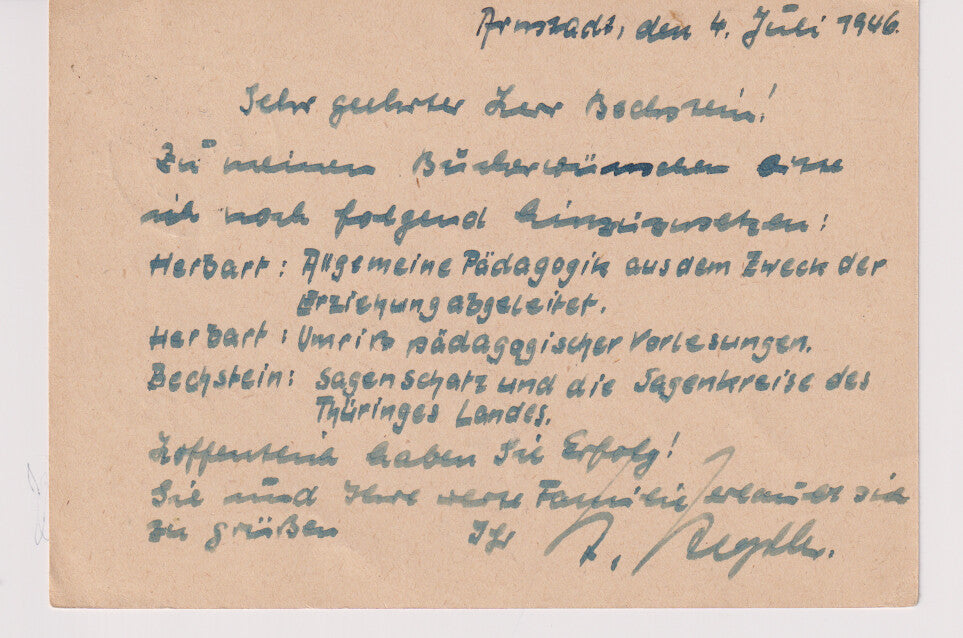 Arnstadt, den 4. Juli 1946.
Sehr geehrter Herr Bechstein!
Zu meinen Bücherwünschen bitte
ich noch folgend hinzuzusetzen:
Herbart: Allgemeine Pädagogik aus dem Zweck der
Erziehung abgeleitet.
Herbart: Umriß pädagogischer Vorlesungen.
Bechstein: Sagenschatz und die Sagenkreise des
Thüringes Landes.
Hoffentlich haben Sie Erfolg!
Sie und Ihre werte Familie erlaubt sich
zu grüßen Ihr